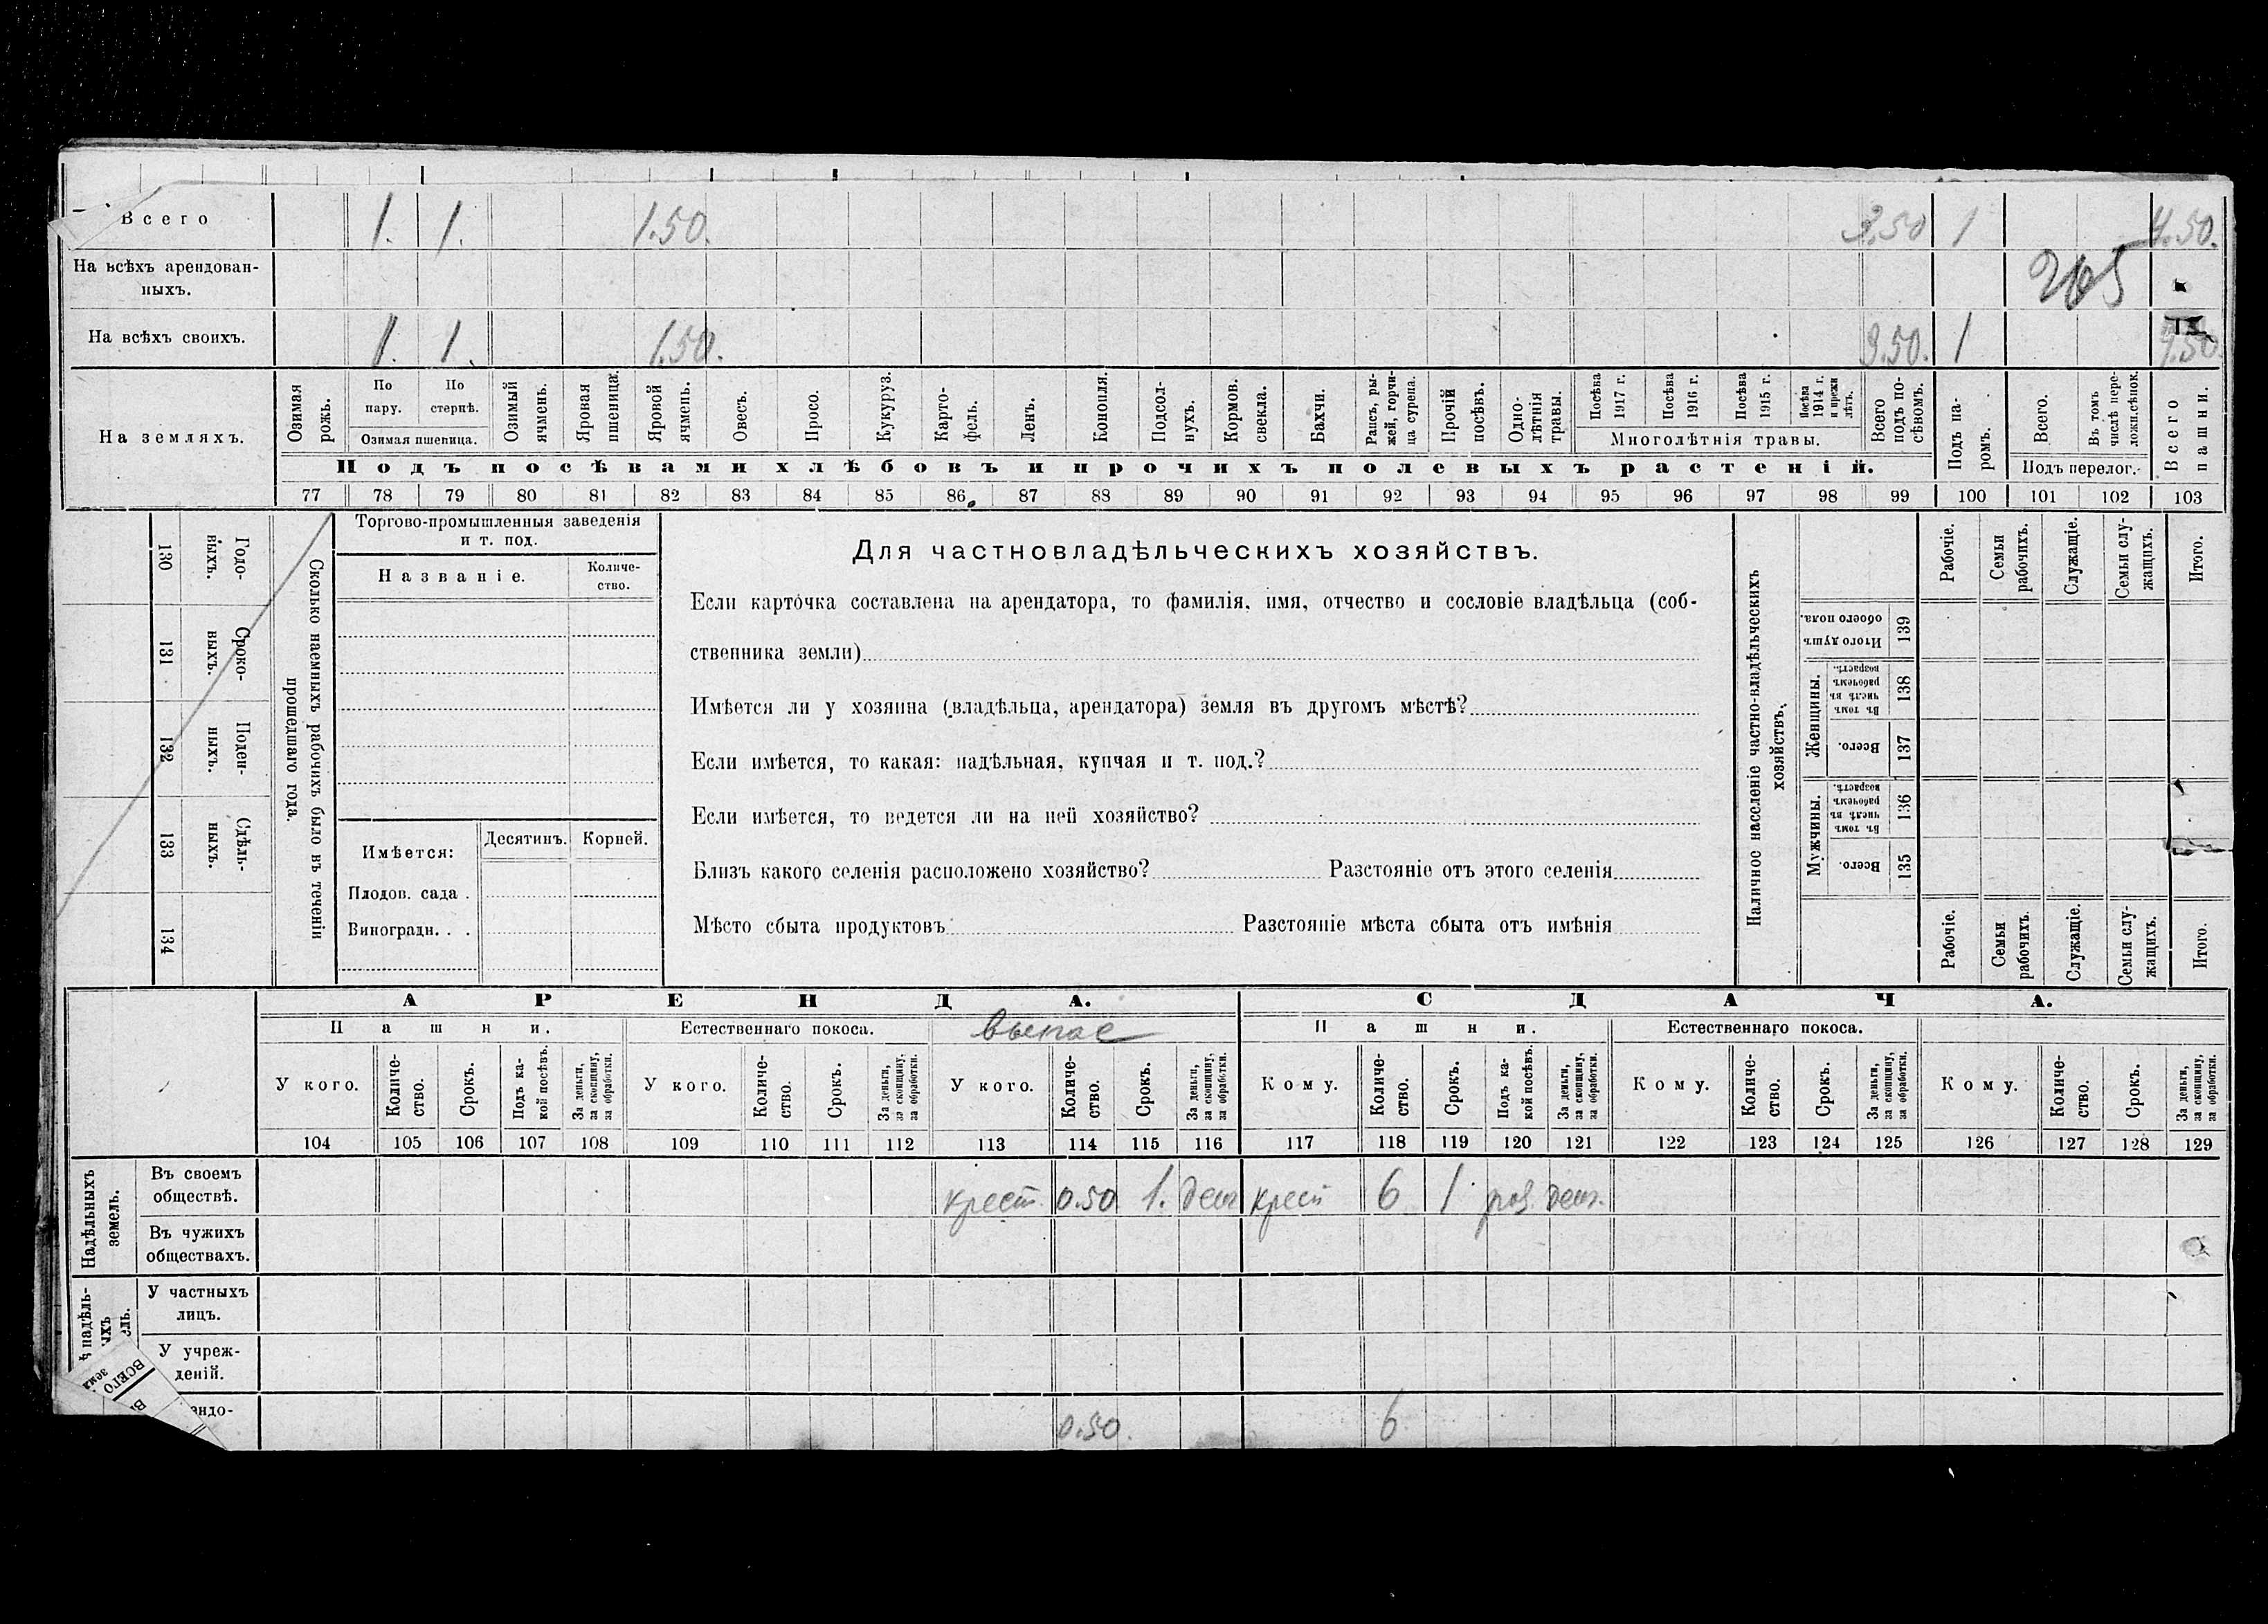 Всего 1. 1. 1.50. 3.50 1 4.50.
На всѣхъ арендован-
ныхъ.
265
На всѣхъ своихъ. 1. 1. 1.50. 3.50. 1 4.50
На земляхъ.
Озимая рожь.
По пару.
По стернѣ.
Озимая пшеница.
Озимый ячмень.
Яровая пшеница.
Яровой ячмень.
Овесъ.
Просо.
Кукуруз.
Карто-
фель.
Ленъ.
Конопля.
Подсол-
нухъ.
Кормов. свекла.
Бахчи.
Рапсъ, ры-
жей, горчи-
ца сурепа.
Прочій посѣвъ.
Одно-
лѣтнія травы.
Посѣва 1917 г.
Посѣва 1916 г.
Посѣва 1915 г.
Посѣва 1914 г. и прежн лѣтъ.
Многолѣтнія травы.
Всего подъ по-
сѣвомъ.
Подъ па-
ромъ.
Всего.
Въ томъ числѣ пере-
ложн.сѣнок.
Подъ перелог.
Всего пашни.
Подъ посѣвами хлѣбовъ и прочихъ полевыхъ растеній.
77 78 79 80 81 82 83 84 85 86 87 88 89 90 91 92 93 94 95 96 97 98 99 100 101 102 103
130 Годо-
выхъ.
131 Сроко-
выхъ.
132 Поден-
ныхъ.
133 Сдѣль-
ныхъ.
134
Сколько наемныхъ рабочихъ было въ теченіи
прошедшаго года.
Торгово-промышленныя заведенія
и т. под.
Названіе.
Количе-
ство.
Имѣется: Десятинъ. Корней.
Плодов. сада .
Виноградн. . .
Для частновладѣльческихъ хозяйствъ.
Если карточка составлена на арендатора, то фамилія, имя, отчество и сословіе владѣльца (соб-
ственника земли)
Имѣется ли у хозяина (владѣльца, арендатора) земля въ другомъ мѣстѣ?
Если имѣется, то какая: надѣльная, купчая и т. под.?
Если имѣется, то ведется ли на ней хозяйство?
Близъ какого селенія расположено хозяйство? Разстояніе отъ этого селенія
Мѣсто сбыта продуктовъ Разстояніе мѣста сбыта отъ имѣнія
Наличное населеніе частно-владѣльческихъ
хозяйствъ.
Рабочіе.
Семьи рабочихъ.
Служащіе.
Семьи слу-
жащихъ.
Итого.
Итого душ обоего пола. 139
Женщины.
Въ томъ числѣ въ рабочемъ возрастѣ. 138
Всего. 137
Мужчины.
Въ томъ числѣ въ рабочемъ возрастѣ. 136
Всего. 135
Рабочіе.
Семьи рабочихъ.
Служащіе.
Семьи слу-
жащихъ.
Итого.
АРЕНДА. СДАЧА.
Пашни. Естественнаго покоса. выпас Пашни. Естественнаго покоса.
У кого.
Количе-
ство.
Срокъ.
Подъ ка-
кой посѣвъ.
За деньги,
за скопщину,
за обработки.
У кого.
Количе-
ство.
Срокъ.
За деньги,
за скопщину,
за обработки.
У кого.
Количе-
ство.
Срокъ.
За деньги,
за скопщину,
за обработки.
Кому.
Количе-
ство.
Срокъ.
Подъ ка-
кой посѣвъ.
За деньги,
за скопщину,
за обработки.
Кому.
Количе-
ство.
Срокъ.
За деньги,
за скопщину,
за обработки.
Кому.
Количе-
ство.
Срокъ.
За деньги,
за скопщину,
за обработки.
104 105 106 107 108 109 110 111 112 113 114 115 116 117 118 119 120 121 122 123 124 125 126 127 128 129
Надѣльныхъ
земель.
Въ своемъ
обществѣ.
крест. 0.50 1. ден крест 6 1 ден.
Въ чужихъ
обществахъ.
У частныхъ
лицъ.
У учреж-
деній.
ВСЕГО
зем
0.50. 6